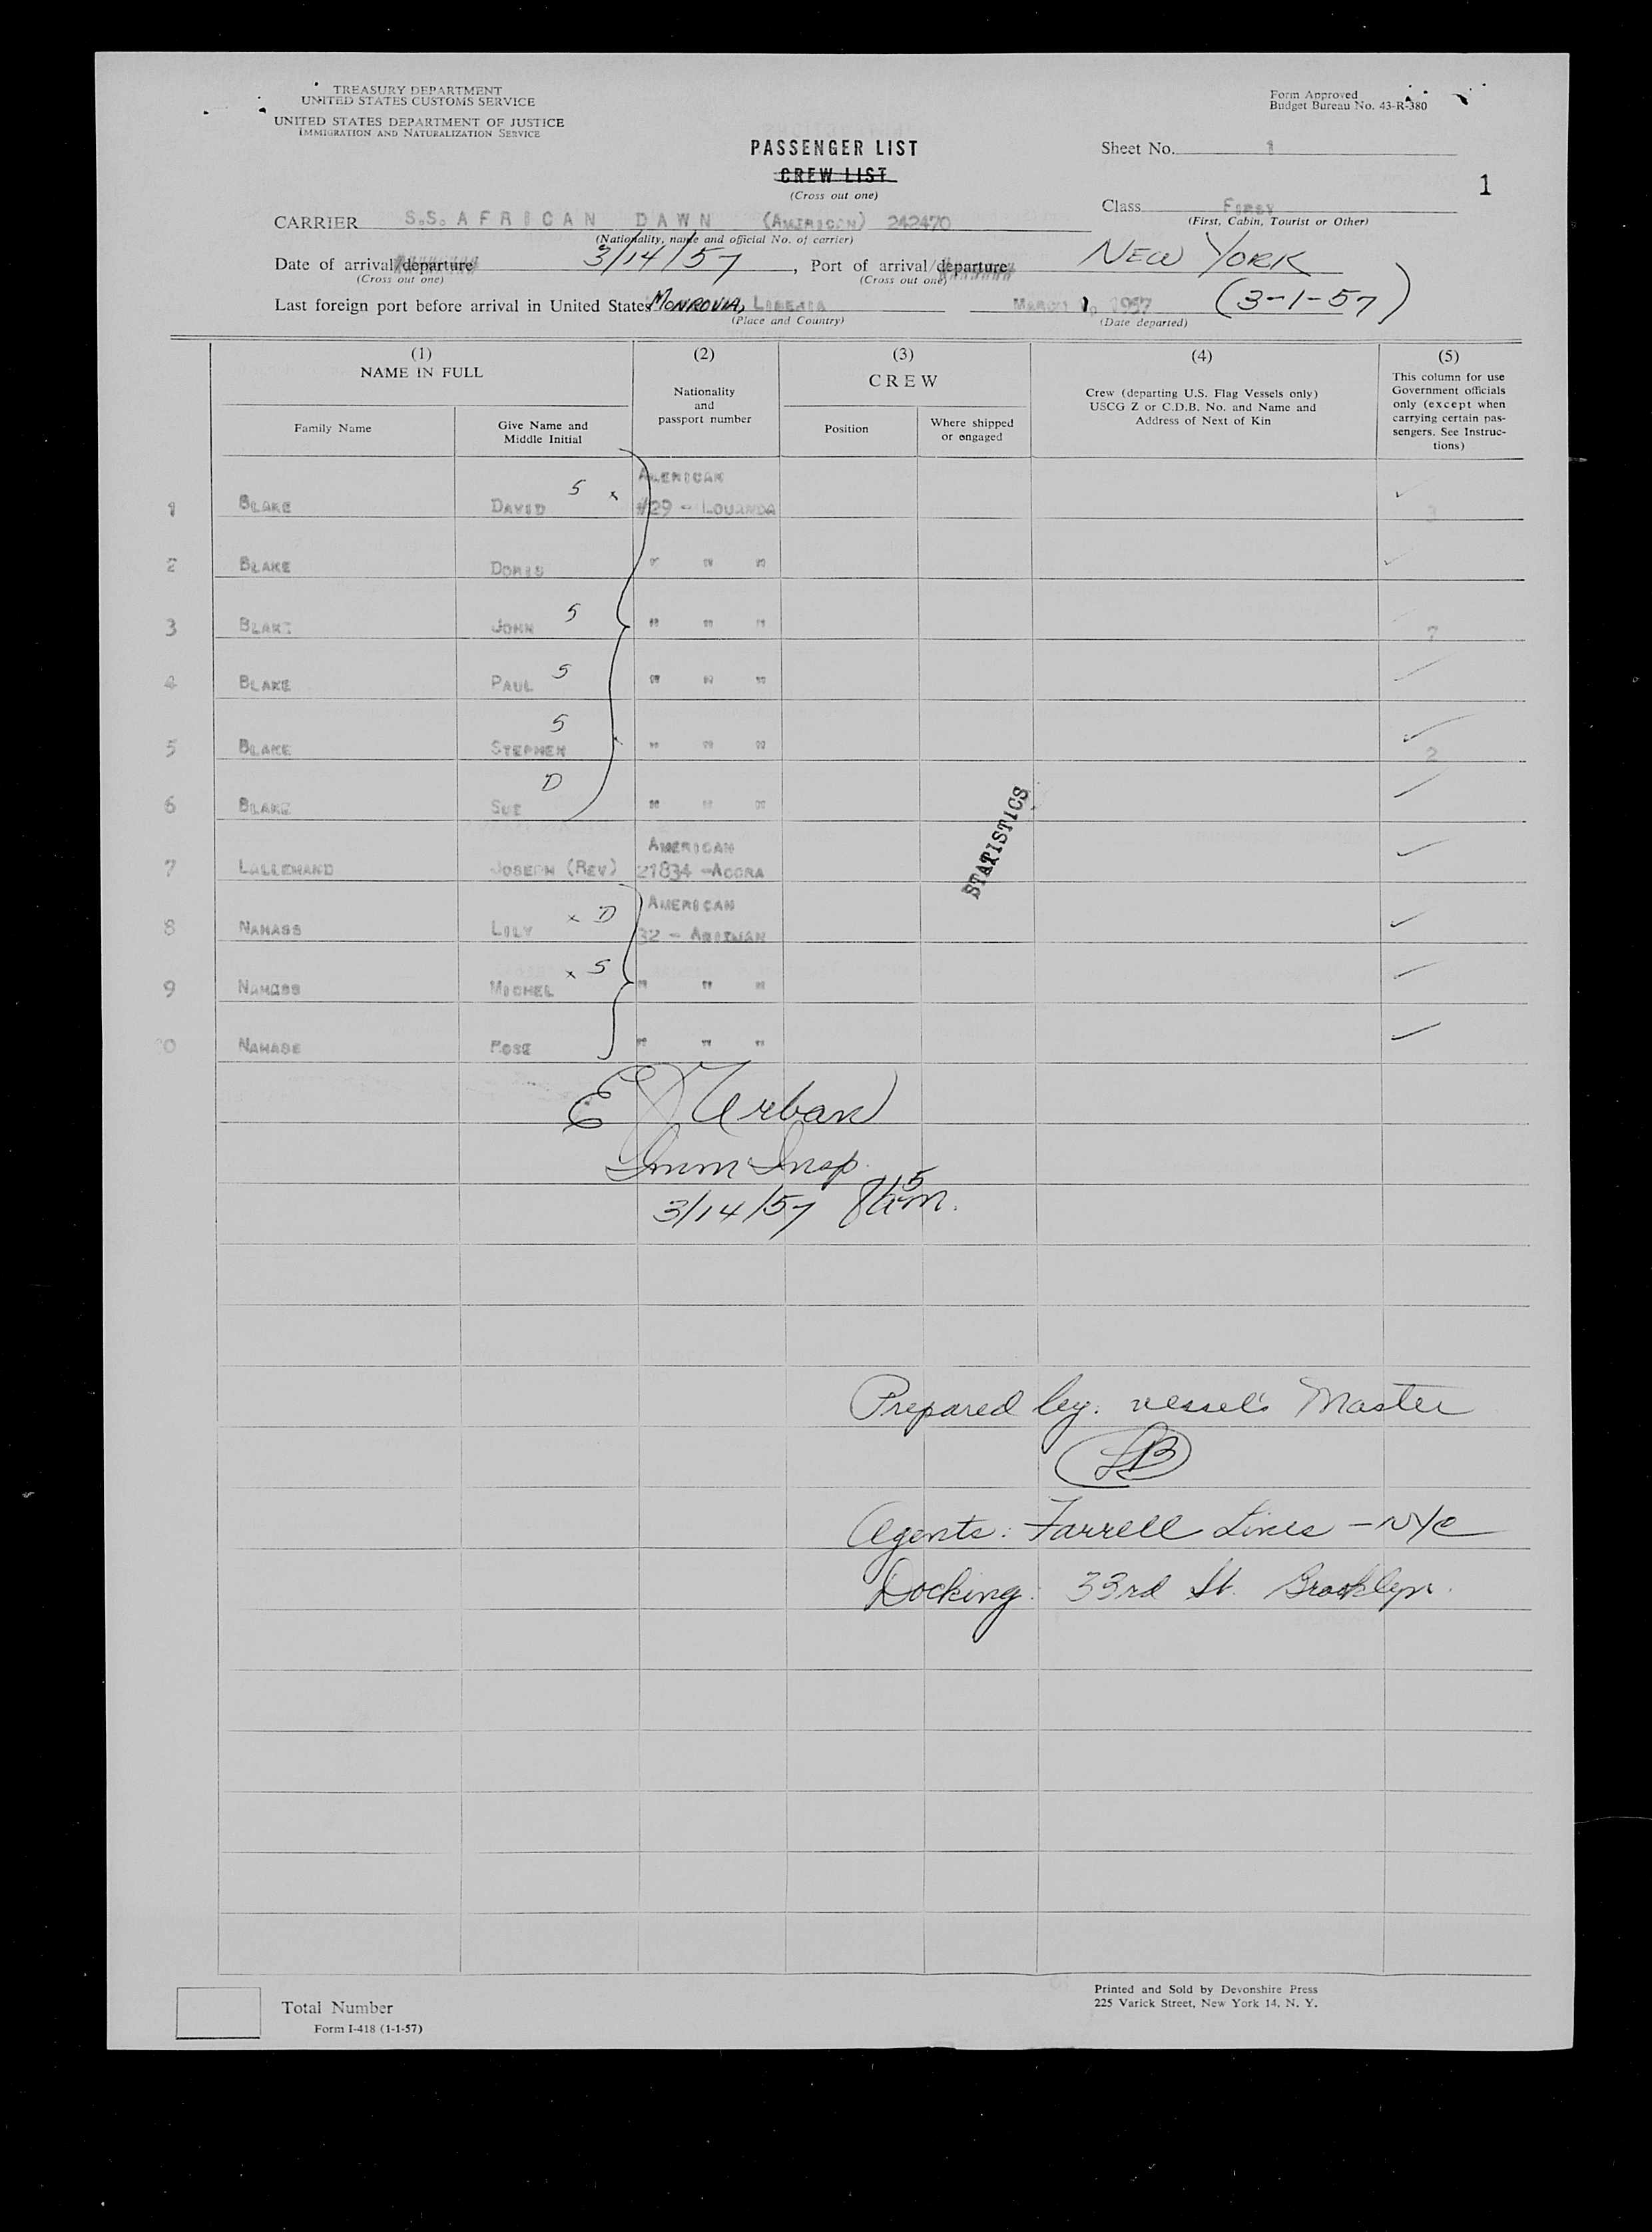 TREASURY DEPARTMENT
UNITED STATES CUSTOMS SERVICE
UNITED STATES DEPARTMENT OF JUSTICE
IMMIGRATION AND NATURALIZATION SERVICE
Form Approved
Budget Bureau No. 43-R-380
PASSENGER LIST
CREW LIST
(Cross out one)
Sheet No. 1
1
Class First
(First, Cabin, Tourist or Other)
CARRIER S.S. AFRICAN DAWN (AMERICAN) 242470
(Nationality, name and official No. of carrier)
Date of arrival/departure 3/14/57, Port of arrival/departure NEW YORK
(Cross out one) (Cross out one)
Last foreign port before arrival in United States MONROVIA, LIBERIA MARCH 1, 1957 (3-1-57)
(Place and Country) (Date departed)
(1) (2) (3) (4) (5)
NAME IN FULL
Nationality and passport number
CREW
Crew (departing U.S. Flag Vessels only) USCG Z or C.D.B. No. and Name and Address of Next of Kin
This column for use Government officials only (except when carrying certain passengers. See Instructions)
Family Name Give Name and Middle Initial Position Where shipped or engaged
AMERICAN
1 BLAKE DAVID S x #29 - LOUANDA 3
2 BLAKE DORIS " " "
3 BLAKE JOHN S " " " 7
4 BLAKE PAUL S " " "
5 BLAKE STEPHEN S " " " 2
6 BLAKE SUE D " " "
AMERICAN
7 LALLEMAND JOSEPH (REV) 21834 - ACCRA
STATISTICS
AMERICAN
8 NAHASS LILY x D 32 - ABIDJAN
9 NAHASS MICHEL x S " " "
10 NAHASS ROSE " " "
E J Urban
Imm Insp.
3/14/57 8 15 am.
Prepared by: vessel's Master
LB
Agents: Farrell Lines - NYC
Docking: 33rd St. Brooklyn.
Total Number
Form I-418 (1-1-57)
Printed and Sold by Devonshire Press
225 Varick Street, New York 14, N. Y.